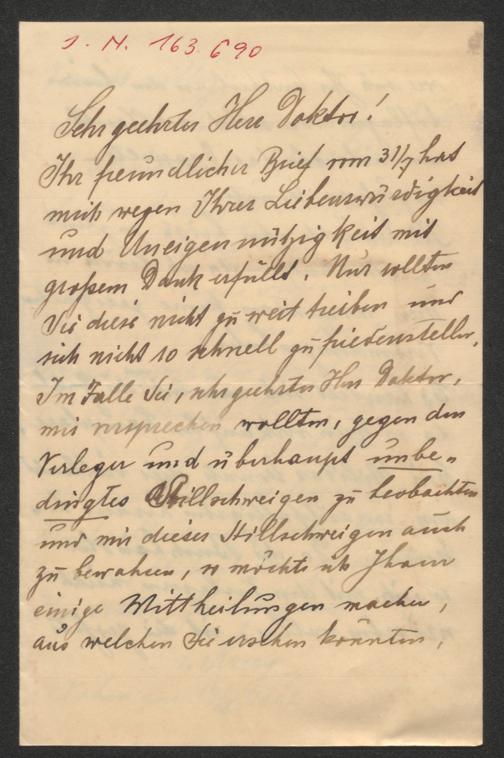 J. N. 163.690
Sehr geehrter Herr Doktor!
Ihr freundlicher Brief vom 31/7 hat
mich wegen Ihrer Liebenswürdigkeit
und Uneigennützigkeit mit
großem Dank erfüllt. Nur sollten
Sie diese nicht zu weit treiben und
sich nicht so schnell zufriedenstellen.
Im Falle Sie, sehr geehrter Herr Doktor,
mir versprechen wollten, gegen den
Verleger und überhaupt unbe-
dingtes Stillschweigen zu beobachten
und mir dieses Stillschweigen auch
zu bewahren, so möchte ich Ihnen
einige Mittheilungen machen,
aus welchen Sie ersehen könnten,